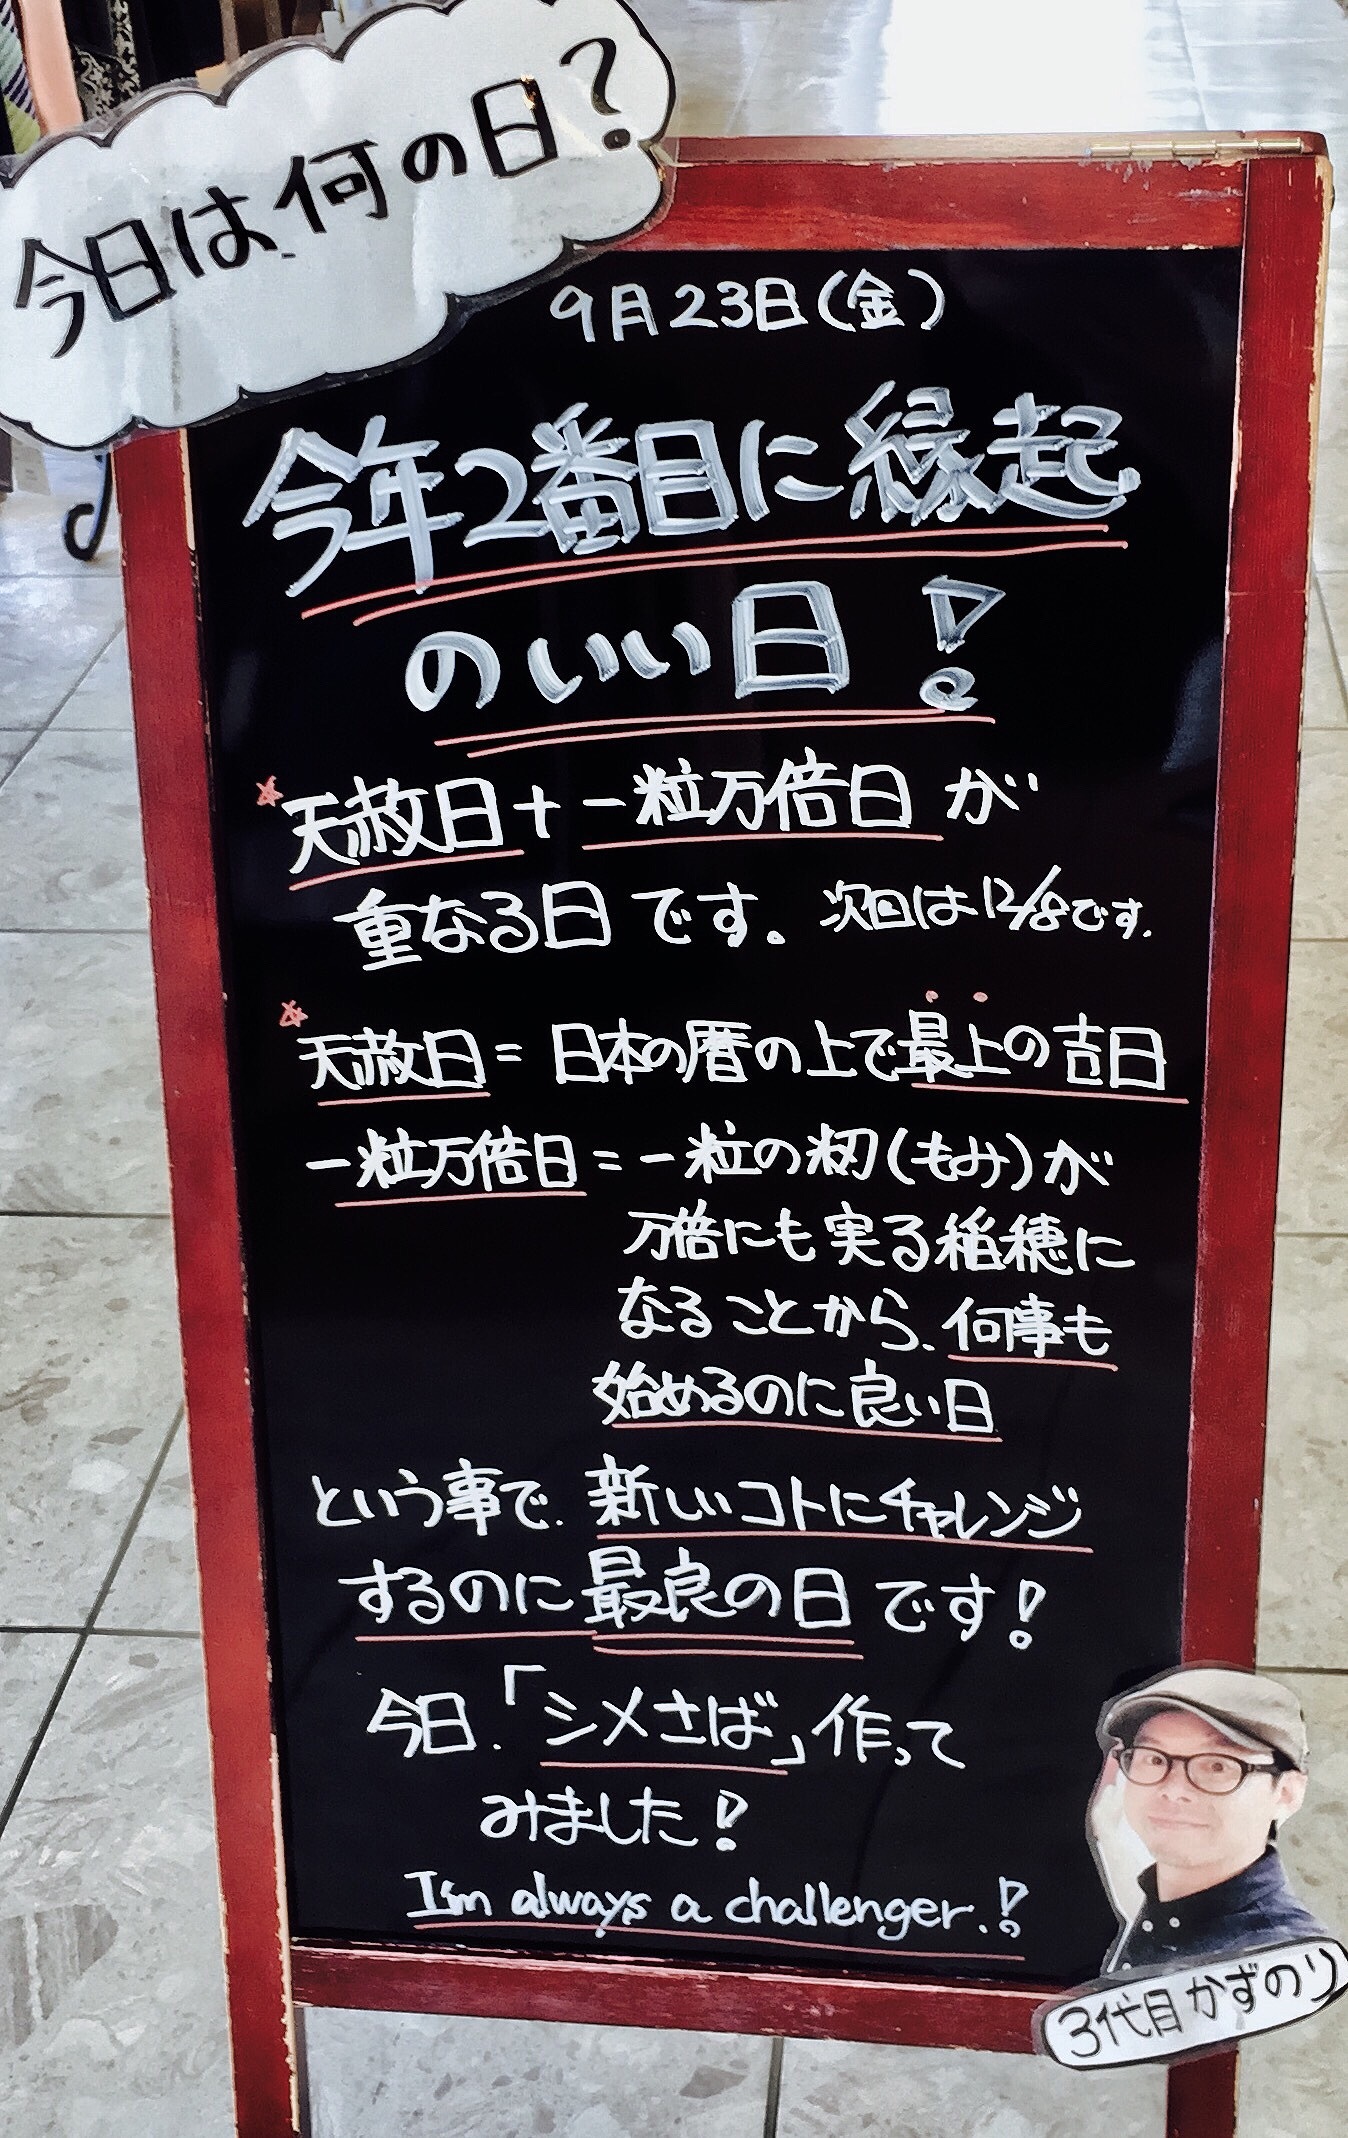 今日は何の日?
9月23日(金)
今年2番目に縁起
のいい日!
天赦日+一粒万倍日が
重なる日です。次回は12/8です.
天赦日=日本の暦の上で最上の吉日
一粒万倍日=一粒の籾(もみ)が
万倍にも実る稲穂に
なることから、何事も
始めるのに良い日
という事で、新しいコトにチャレンジ
するのに最良の日です!
今日、「シメさば」作って
みました!
I'm always a challenger.!
3代目かずのり